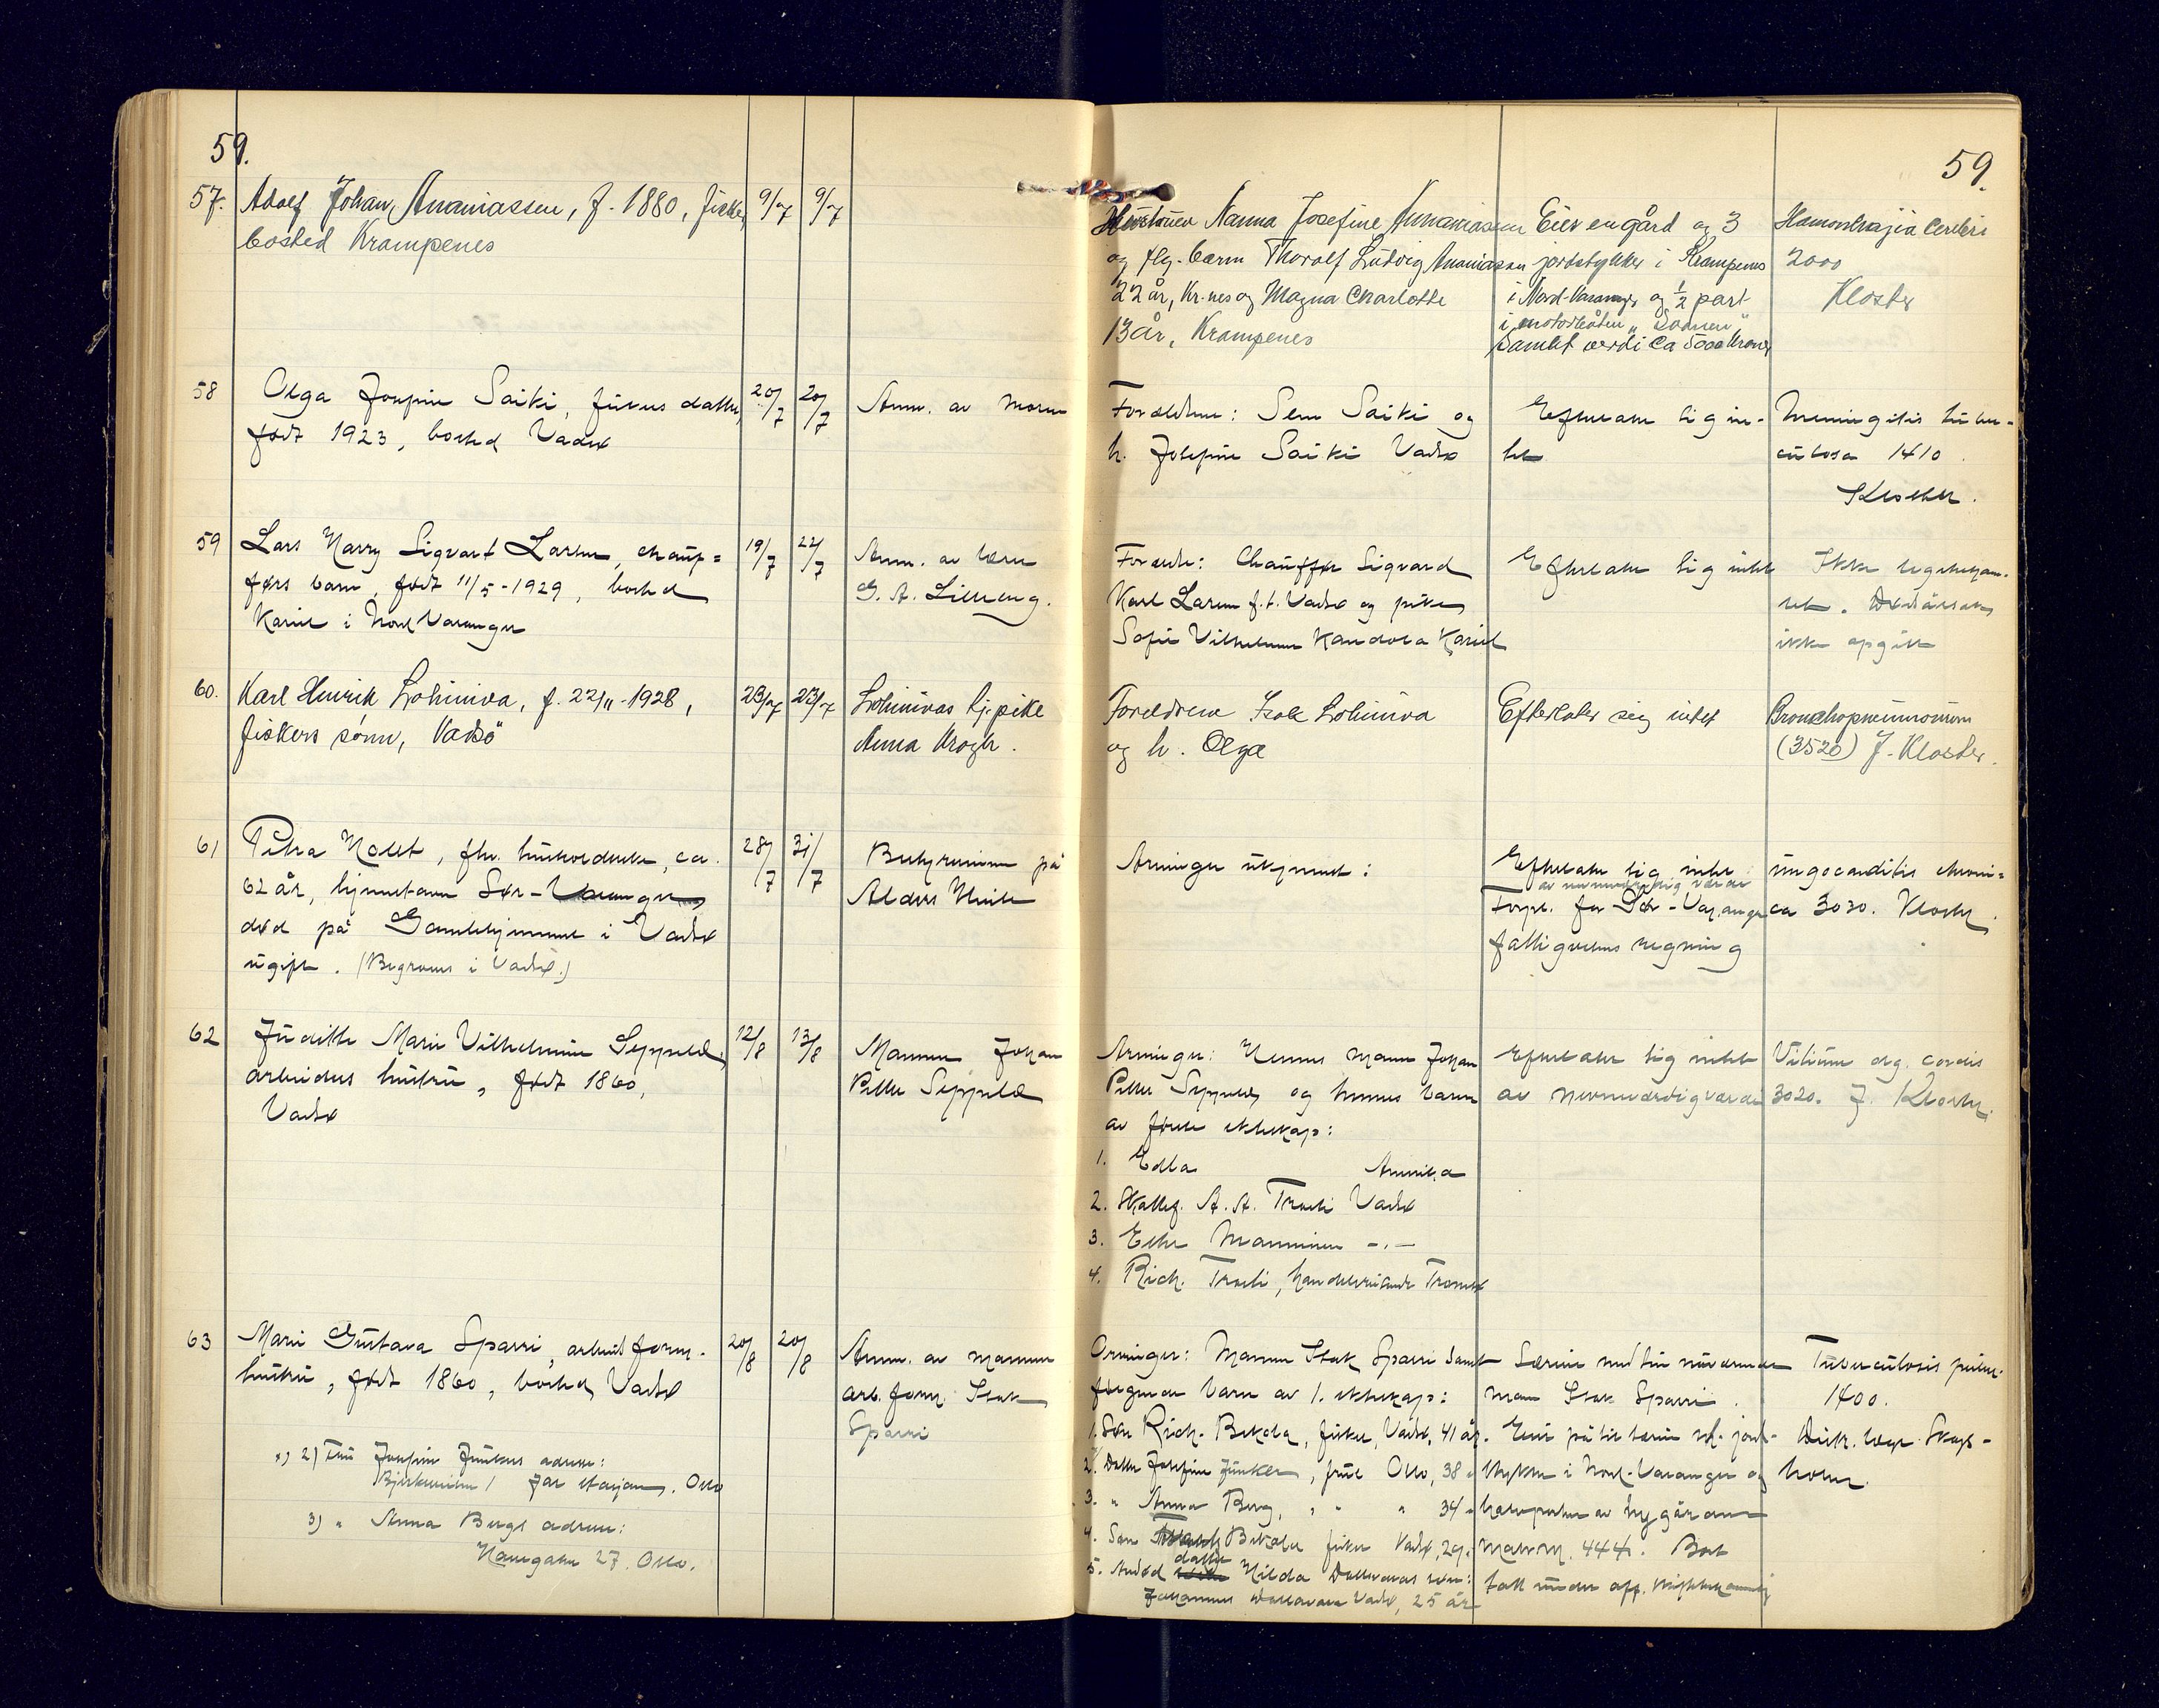 59.
59.
57. Adolf Johan Ananiassen, f. 1880, fisker, 9/7 9/7
bosted Krampenes
Hustruen Nanna Josefine Ananiassen
og flg. barn Thoralf Ludvig Ananiassen
22 år, Kr.nes og Magna Charlotte
13 år, Krampenes
Eier en gård og 3
jordstykker i Krampenes
i Nord-Varanger og 1/2 part
i motorbåten
Samlet verdi ca 5000 kroner
Hæmorrhagia cerebri
2000
Kloster
58 Olga Josefine Saiki, fiskers datter, 20/7 20/7 Anm. av moren
født 1923, bosted Vadsø
Forældrene: Saiki og
h. Josefine Saiki Vadsø
Efterlater sig in-
tet
Meningitis tuber-
culosa 1410.
Kloster.
59 Lars Harry Sigvart Larsen, chauf- 19/7 22/7 Anm. av
førs barn, født 11/5-1929, bosted G. A. Lilleeng.
Kariel i Nord Varanger
Foreldre: Chauffør Sigvard
Karl Larsen f.t. Vadsø og pike
Sofie Vilhelmine Kandola Kariel
Efterlater sig intet
Ikke legebehand-
let. Dødsårsak
ikke opgitt
60. Karl Henrik Lohiniva, f. 22/11-1928, 23/7 23/7 Lohinivas tj.pike
fiskers sønn, Vadsö Anna Krogh.
Foreldrene Isak Lohiniva
og h. Olga
Efterlater sig intet
Bronchopneumonium
(3520) J. Kloster.
61 Petra Holt, fhv. husholderske, ca. 28/7 31/7 Bestyrerinnen på
62 år, hjemstavn Sør-Varanger, Aldershvile
død på Gamlehjemmet i Vadsø
ugift. (Begraves i Vadsø.)
Arvinger ukjent:
Efterlater sig intet
av nevneverdig værdi
Forpl. for Sør-Varanger
fattigvesens regning
myocarditis chroni-
ca 3030. Kloster.
62 Judith Marie Vilhelmine Seppälä, 12/8 13/8 Mannen Johan
arbeiders hustru, født 1860, Petter Seppälä
Vadsø
Arvinger: Hennes mann Johan
Petter Seppälä og hennes barn
av første ekteskap:
1. Edla Amerika
2. Skattef. A. A. Trasti Vadsø
3. Manninen -"-
4. Rich. Trasti, handelsreisende Tromsø
Efterlater sig intet
av nevneverdig værdi
Vitium org. cordis
3020. J. Kloster.
63 Marie Gustava Sparri, arbeidsform. 20/8 20/8 Anm. av mannen
hustru, født 1860, bosted Vadsø arb. form. Isak
Sparri
2) Fru Josefine Junkers adresse:
Jar stasjon, Oslo
3) " Anna Bergs adresse:
27. Oslo.
Arvinger: Mannen Isak Sparri samt
følgende barn av 1. ekteskap:
1. Søn Rich. Bekola, fisker, Vadsø, 41 år.
2. Datter Josefine Junker, frue Oslo, 38 "
3. " Anna Berg, " " " 34 "
4. Søn Bekola fisker Vadsø, 29.
5. Avdød datter Hilda Dallavaras søn:
Johannes Dallavara Vadsø, 25 år
Særeie med sin nuværende
man Isak Sparri.
Eier på sit særeie jord-
stykke i Nord-Varanger og
halvparten av bygården
matr.nr. 444. Boet
tatt under off. skiftebehandling
Tuberculosis pulm.
1400.
Distr. læge Skogs-
holm.